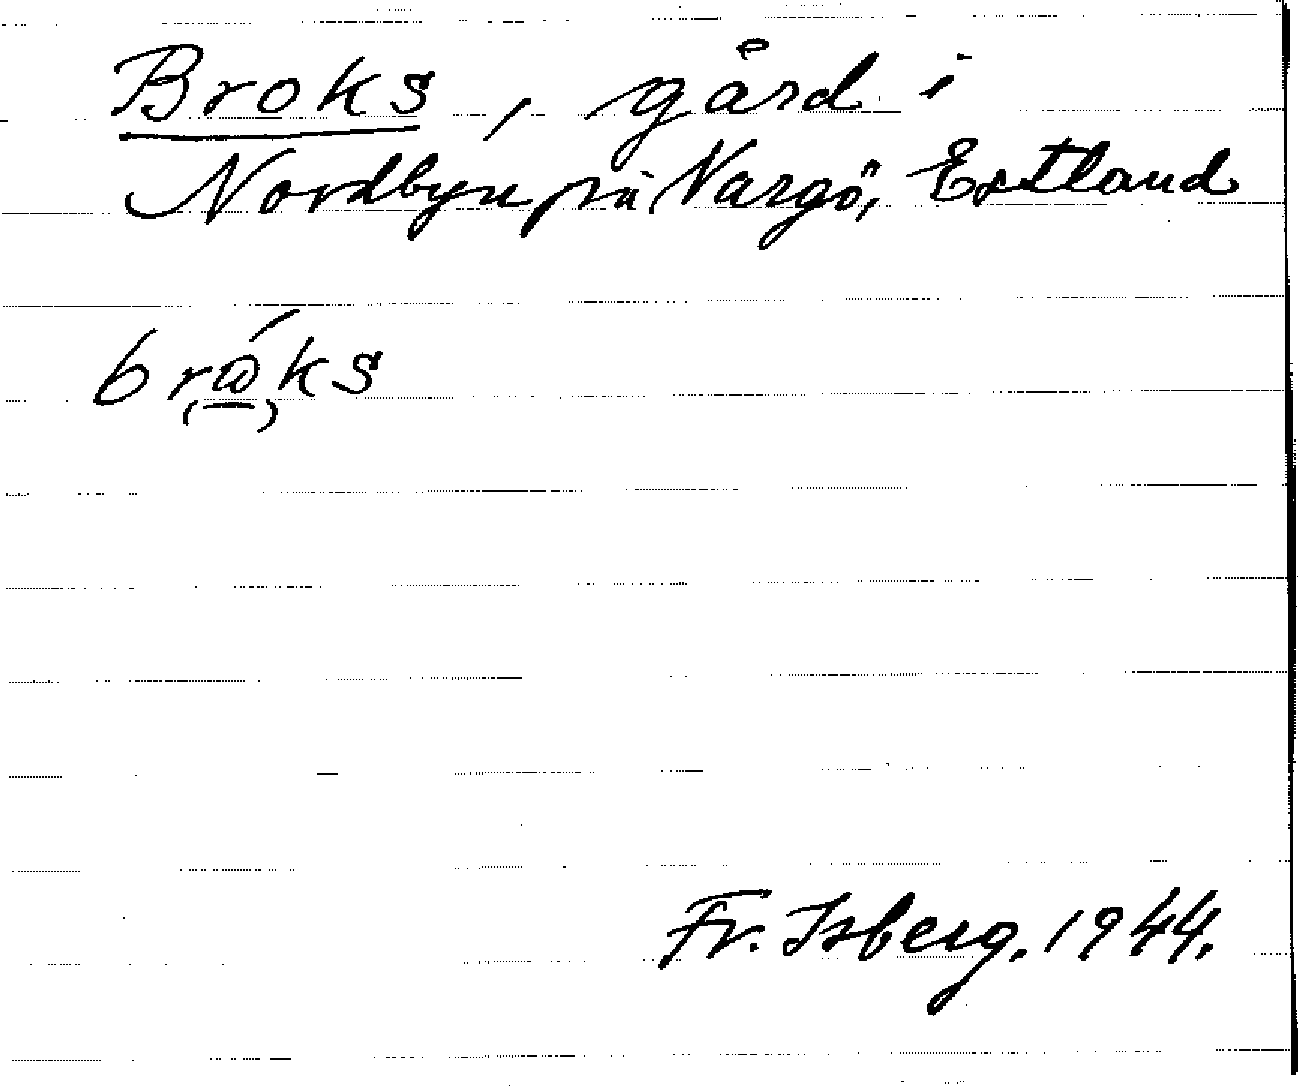 Broks, gård i
Nordbyn på Nargö, Estland
brώks
Fr. Isberg. 1944.